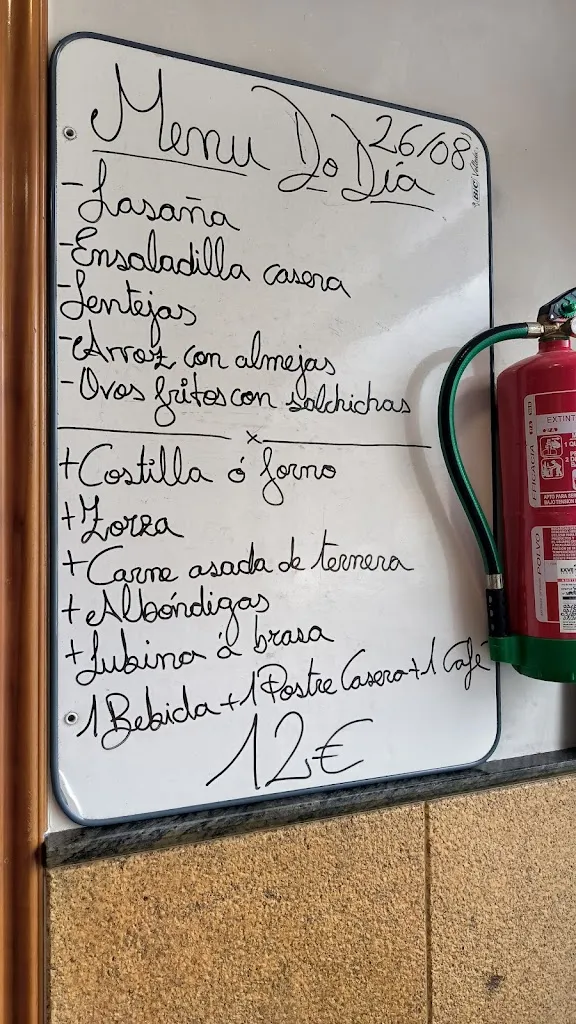 Menu Do Día 26/08
- Lasaña
- Ensaladilla casera
- Lentejas
- Arroz con almejas
- Ovos fritos con salchichas
x
+ Costilla ó forno
+ Zorza
+ Carne asada de ternera
+ Albóndigas
+ Lubina á brasa
1 Bebida + 1 Postre Casero + 1 Café
12€
EXTINT
EFICACIA
POLVO